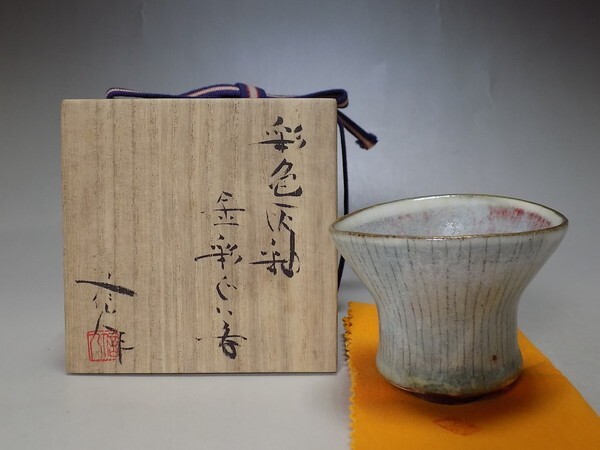 彩色灰釉
金彩ぐい呑
信作